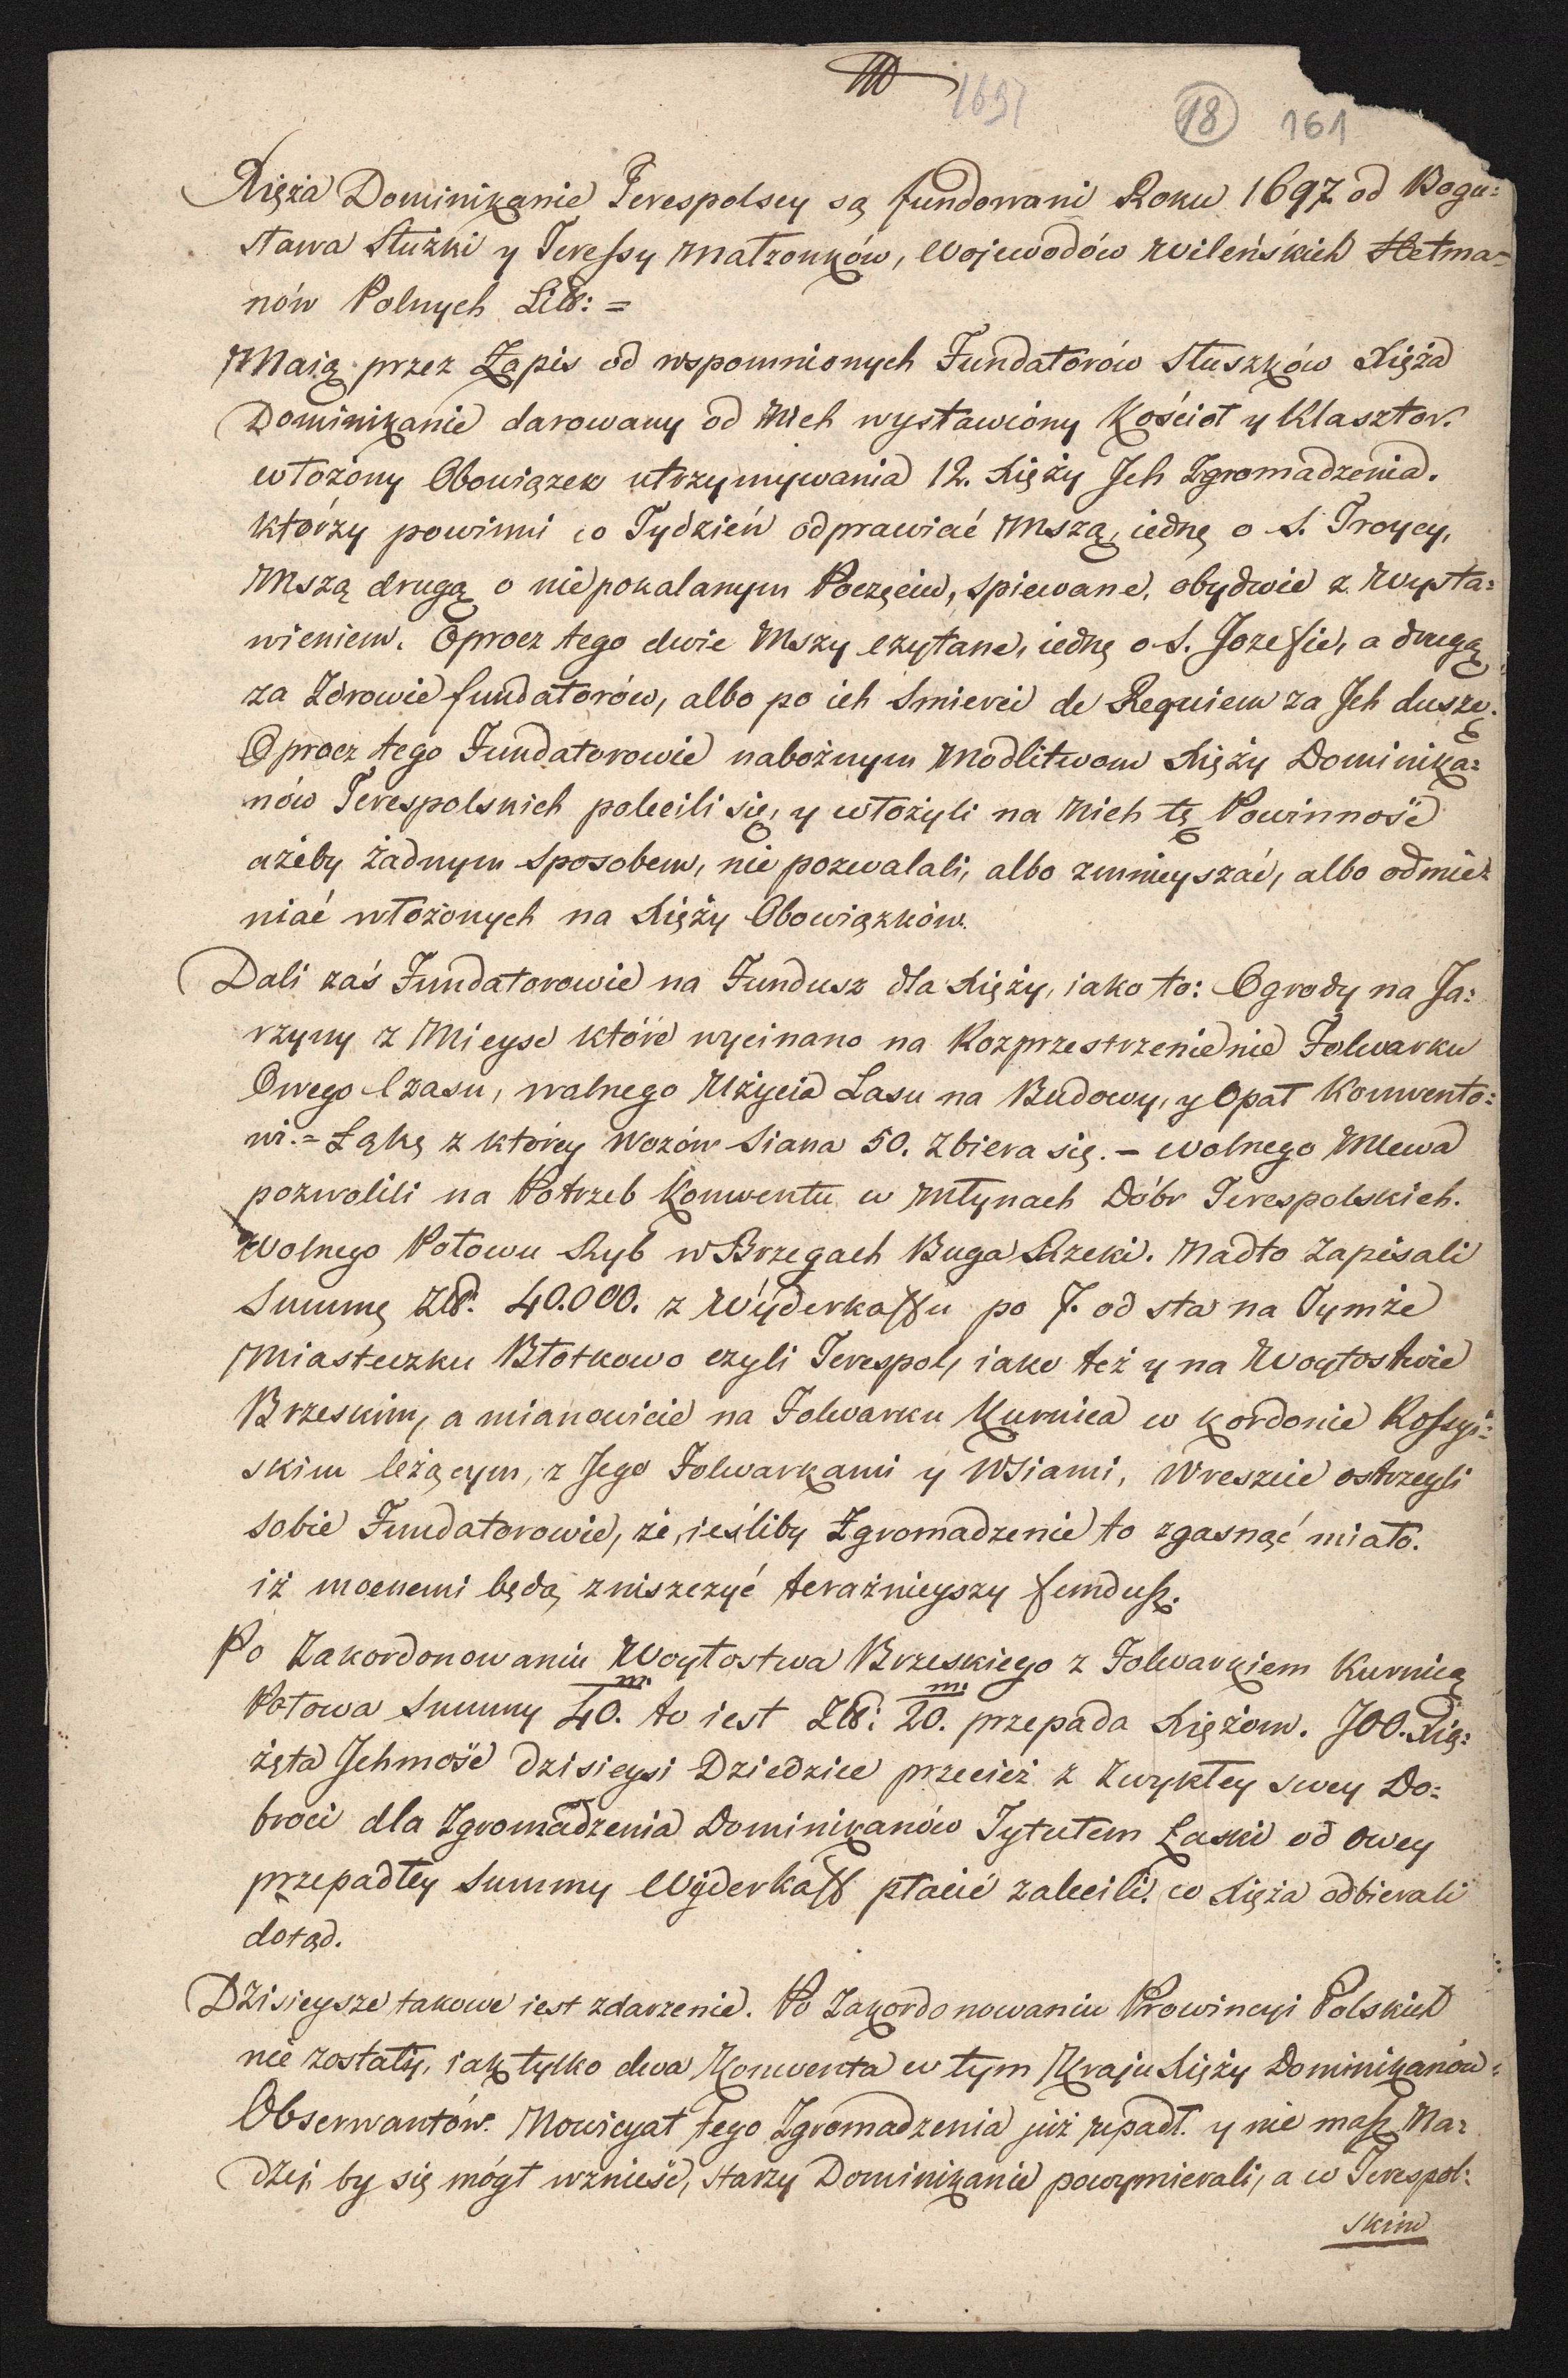 1697
18 161
Xięża Dominikanie Terespolscy są fundowani Roku 1697 od Bogu=
sława Słuźki y Teressy Małzonków, Wojewodów Wileńskich Hetma=
nów Polnych Litt: =
Maią przez Zapis od wspomnionych Fundatorów Słuszków Xięża
Dominikanie darowany od Nich wystawiony Kościoł y Klasztor.
włożony Obowiązek utrzymywania 12. Xięży Ich Zgromadzenia.
którzy powinni co Tydzień odprawiać Mszą, iednę o S. Troycy,
Mszą drugą o niepokalanym Poczęciu, spiewane, obydwie z Wysta=
wieniem. Oprocz tego dwie Mszy czytane, iednę o S. Jozefie, a drugą
za Zdrowie fundatorów, albo po ich Smierci de Requiem za Ich duszę.
Oprocz tego Fundatorowie nabożnym Modlitwom Xięży Dominika=
nów Terespolskich polecili się, y włożyli na Nich tę Powinność
ażeby żadnym Sposobem, nie pozwalali, albo zmnieyszać, albo odmie=
niać włożonych na Xięży Obowiązków.
Dali zaś Fundatorowie na Fundusz dla Xięży, iako to: Ogrody na Ja=
rzyny z Mieysc które wycinano na Rozprzestrzenienie Folwarku
Owego Czasu, wolnego Użycia Lasu na Budowy, y Opał Konwento=
wi. = Łąkę z którey Wozów Siana 50. Zbiera się. - Wolnego Mlewa
pozwolili na Potrzeb Konwentu w Młynach Dóbr Terespolskich.
Wolnego Połowu Ryb w Brzegach Buga Rzeki. Nadto Zapisali
Summę Złł. 40.000. z Wyderkaffu po 7. od sta na Tymże
Miasteczku Błotkowo czyli Terespol, iako też y na Woytostwie
Brzeskim, a mianowicie na Folwarku Kurnica w kordonie Rossyi=
skim leżącym, z Jego Folwarkami y Wsiami, Wreszcie ostrzegli
sobie Fundatorowie, że, ieśliby Zgromadzenie to zgasnąć miało.
iż mocnemi będą zniszczyć teraźnieyszy fundusz.
Po Zakordonowaniu Woytostwa Brzeskiego z Folwarkiem Kurnicą
Połowa Summy 40.m to iest Złł: 20.m przepada Xiężom. JOO. Xią=
żęta Ichmość dzisieysi Dziedzice przecież z Zwykłey swey Do=
broci dla Zgromadzenia Dominikanów Tytułem Łaski od owey
przepadłey Summy Wyderkaff płacić zalecili. co Xięża odbierali
dotąd.
Dzisieysze takowe iest zdarzenie. Po Zakordonowaniu Prowincyi Polskich
nie zostały, iak tylko dwa Konwenta w tym Kraju Xięży Dominikanów
Obserwantów. Nowicyat tego Zgromadzenia już upadł. y nie masz Na=
dzei, by się mógł wznieść, starzy Dominikanie powymierali, a w Terespol=
skim